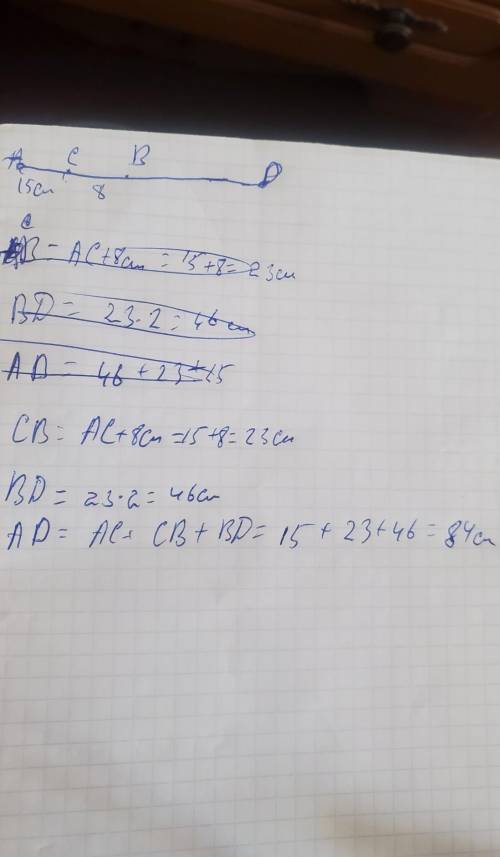 A C B D
15см 8
CB = AC+8см = 15+8= 23см
BD = 23·2 = 46см
AD = 46 + 23 + 15
CB = AC+8см =15+8= 23см
BD = 23·2 = 46см
AD = AC+ CB + BD = 15 + 23+46 = 84см